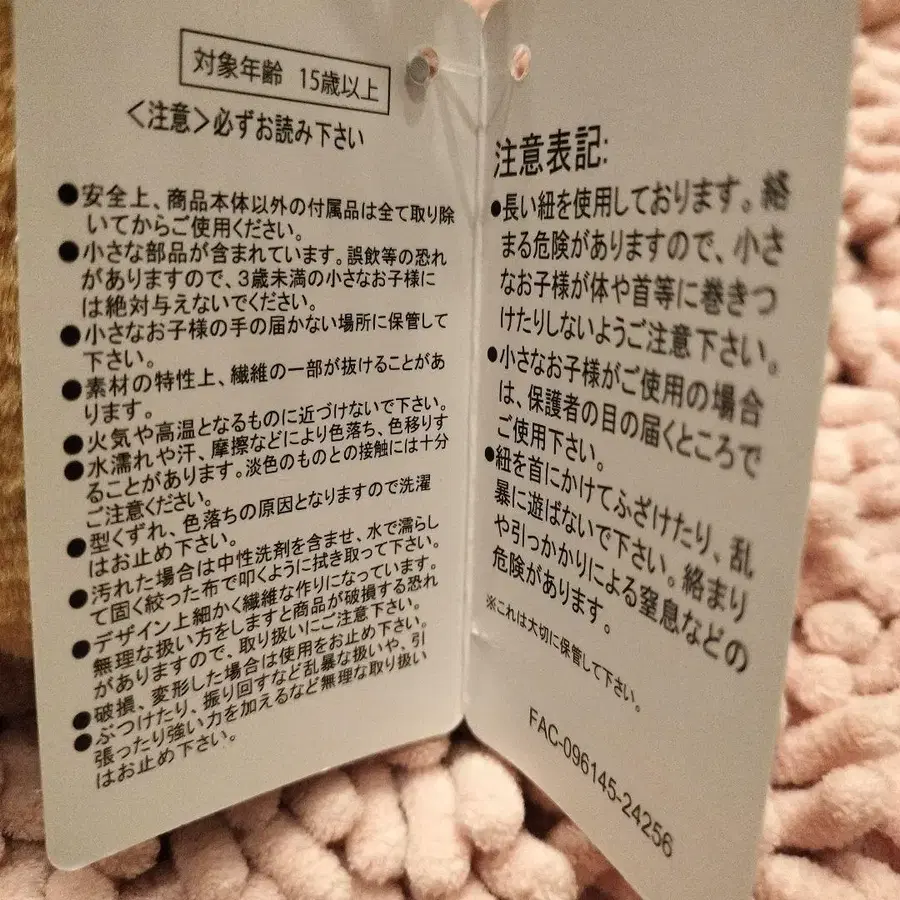 対象年齢 15歳以上
＜注意＞必ずお読み下さい
●安全上、商品本体以外の付属品は全て取り除
いてからご使用ください。
●小さな部品が含まれています。誤飲等の恐れ
がありますので、3歳未満の小さなお子様に
は絶対与えないでください。
●小さなお子様の手の届かない場所に保管して
下さい。
●素材の特性上、繊維の一部が抜けることがあ
ります。
●火気や高温となるものに近づけないで下さい。
●水濡れや汗、摩擦などにより色落ち、色移りす
ることがあります。淡色のものとの接触には十分
ご注意ください。
●型くずれ、色落ちの原因となりますので洗濯
はお止め下さい。
●汚れた場合は中性洗剤を含ませ、水で濡らし
て固く絞った布で叩くように拭き取って下さい。
●デザイン上細かく繊維な作りになっています。
無理な扱い方をしますと商品が破損する恐れ
がありますので、取り扱いにご注意下さい。
●破損、変形した場合は使用をお止め下さい。
●ぶつけたり、振り回すなど乱暴な扱いや、引
張ったり強い力を加えるなど無理な取り扱い
はお止め下さい。
注意表記:
●長い紐を使用しております。絡
まる危険がありますので、小さ
なお子様が体や首等に巻きつ
けたりしないようご注意下さい。
●小さなお子様がご使用の場合
は、保護者の目の届くところで
ご使用下さい。
●紐を首にかけてふざけたり、乱
暴に遊ばないで下さい。絡まり
や引っかかりによる窒息などの
危険があります。
※これは大切に保管して下さい。
FAC-096145-24256